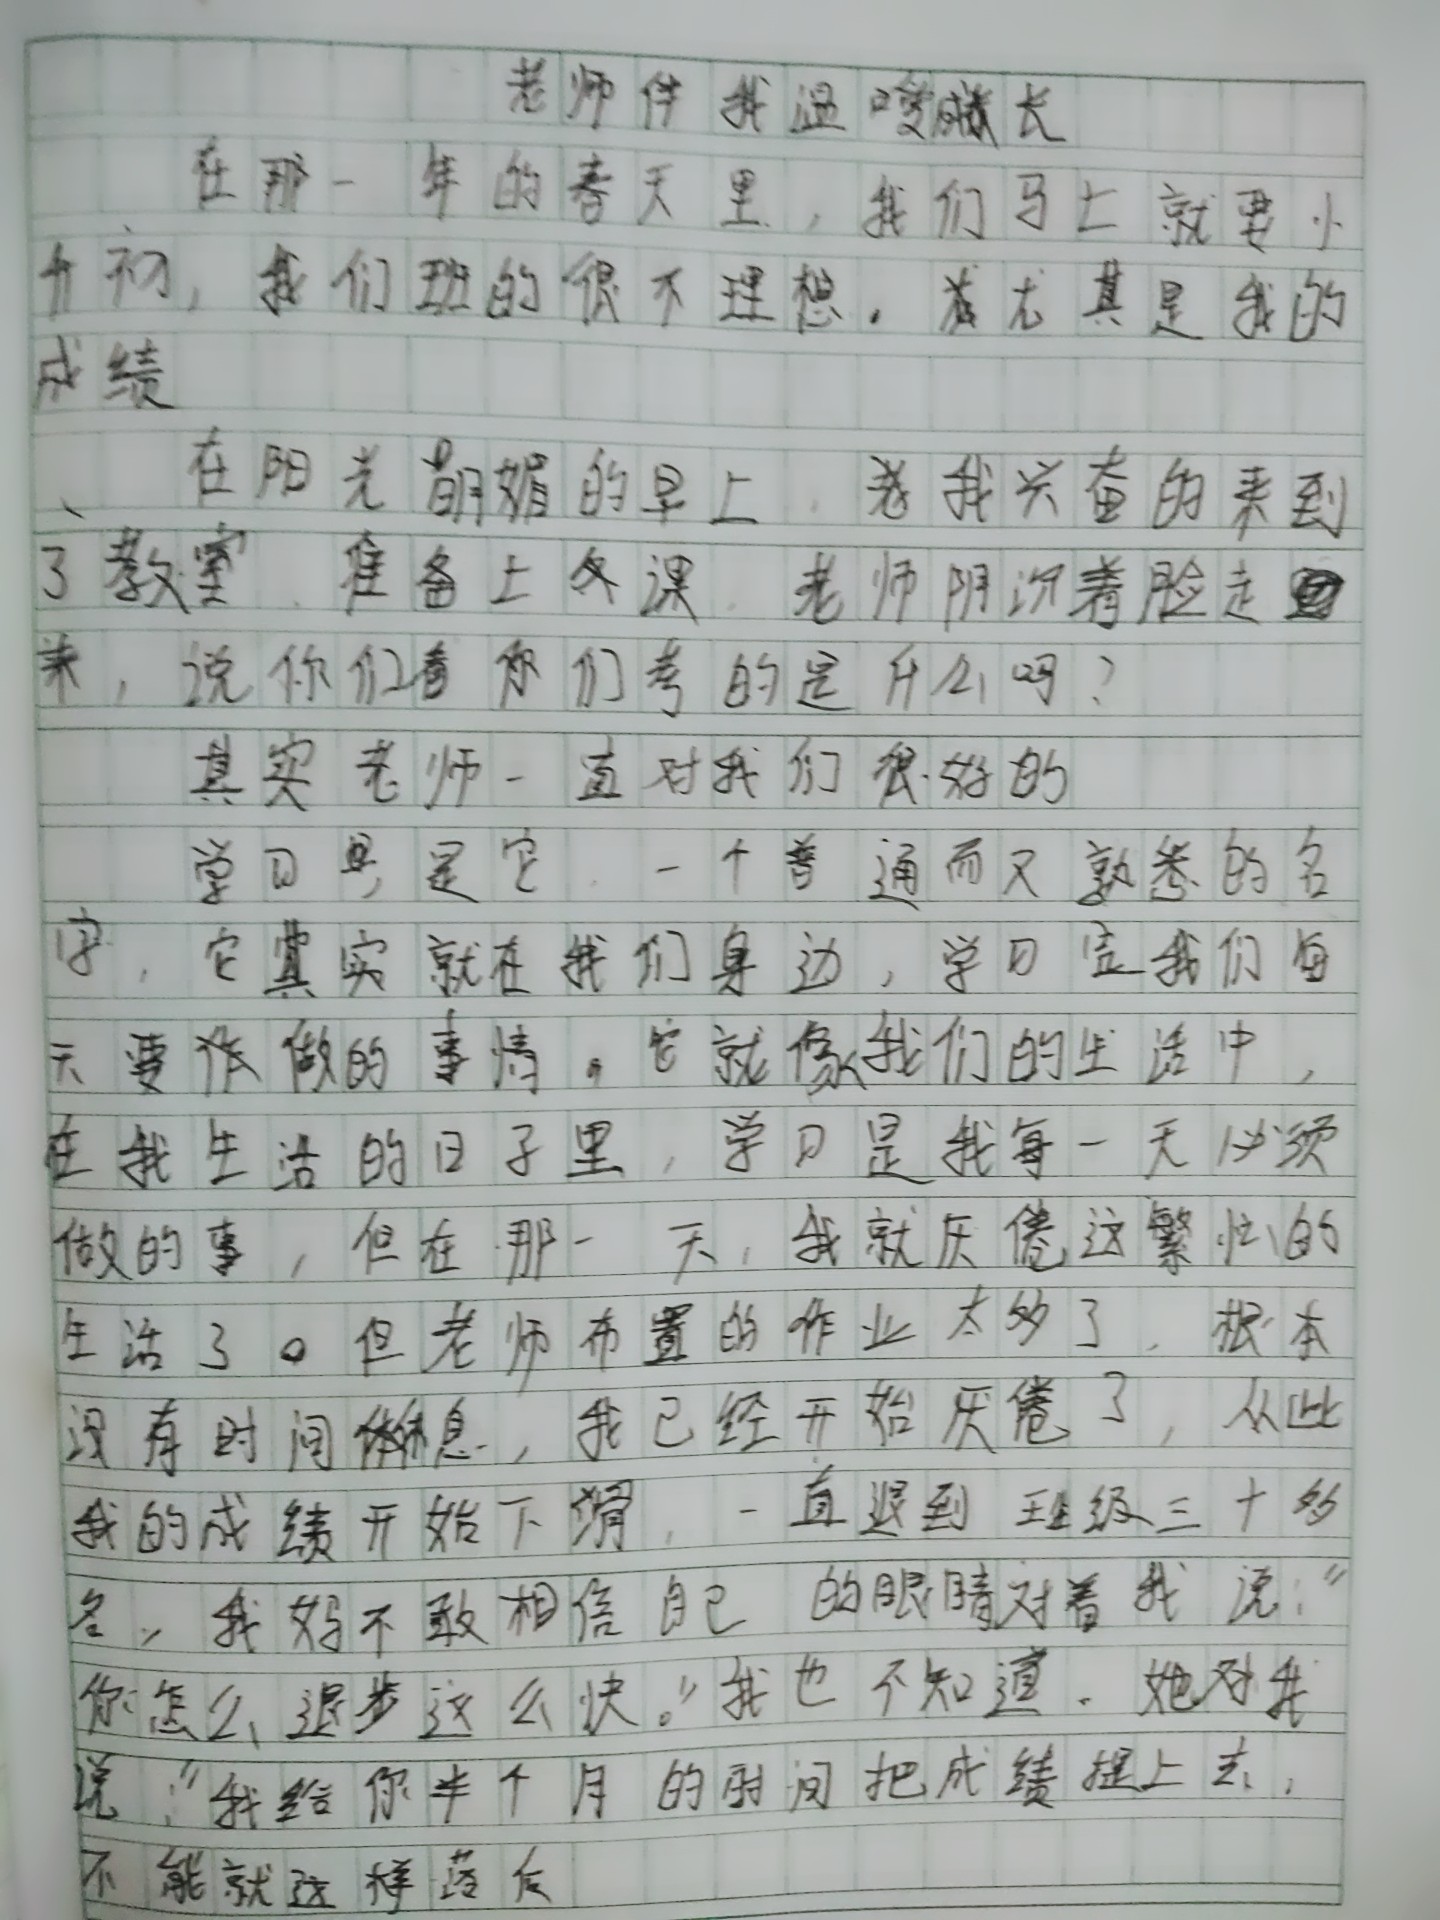 老师伴我温暖成长
在那一年的春天里，我们马上就要小
升初，我们班的很不理想。尤其是我的
成绩
在阳光明媚的早上，我兴奋的来到
了教室，准备上课，老师阴沉着脸走
来，说你们看你们考的是什么吗？
其实老师一直对我们很好的
学习是它，一个普通而又熟悉的名
字，它其实就在我们身边，学习是我们每
天要做的事情。它就像我们的生活中，
在我生活的日子里，学习是我每一天必须
做的事，但在那一天，我就厌倦这繁忙的
生活了。但老师布置的作业太多了，根本
没有时间休息，我已经开始厌倦了，从此
我的成绩开始下滑，一直退到班级三十多
名，我妈不敢相信自己的眼睛对着我说：“
你怎么退步这么快。”我也不知道。她对我
说：“我给你半个月的时间把成绩提上去，
不能就这样落后